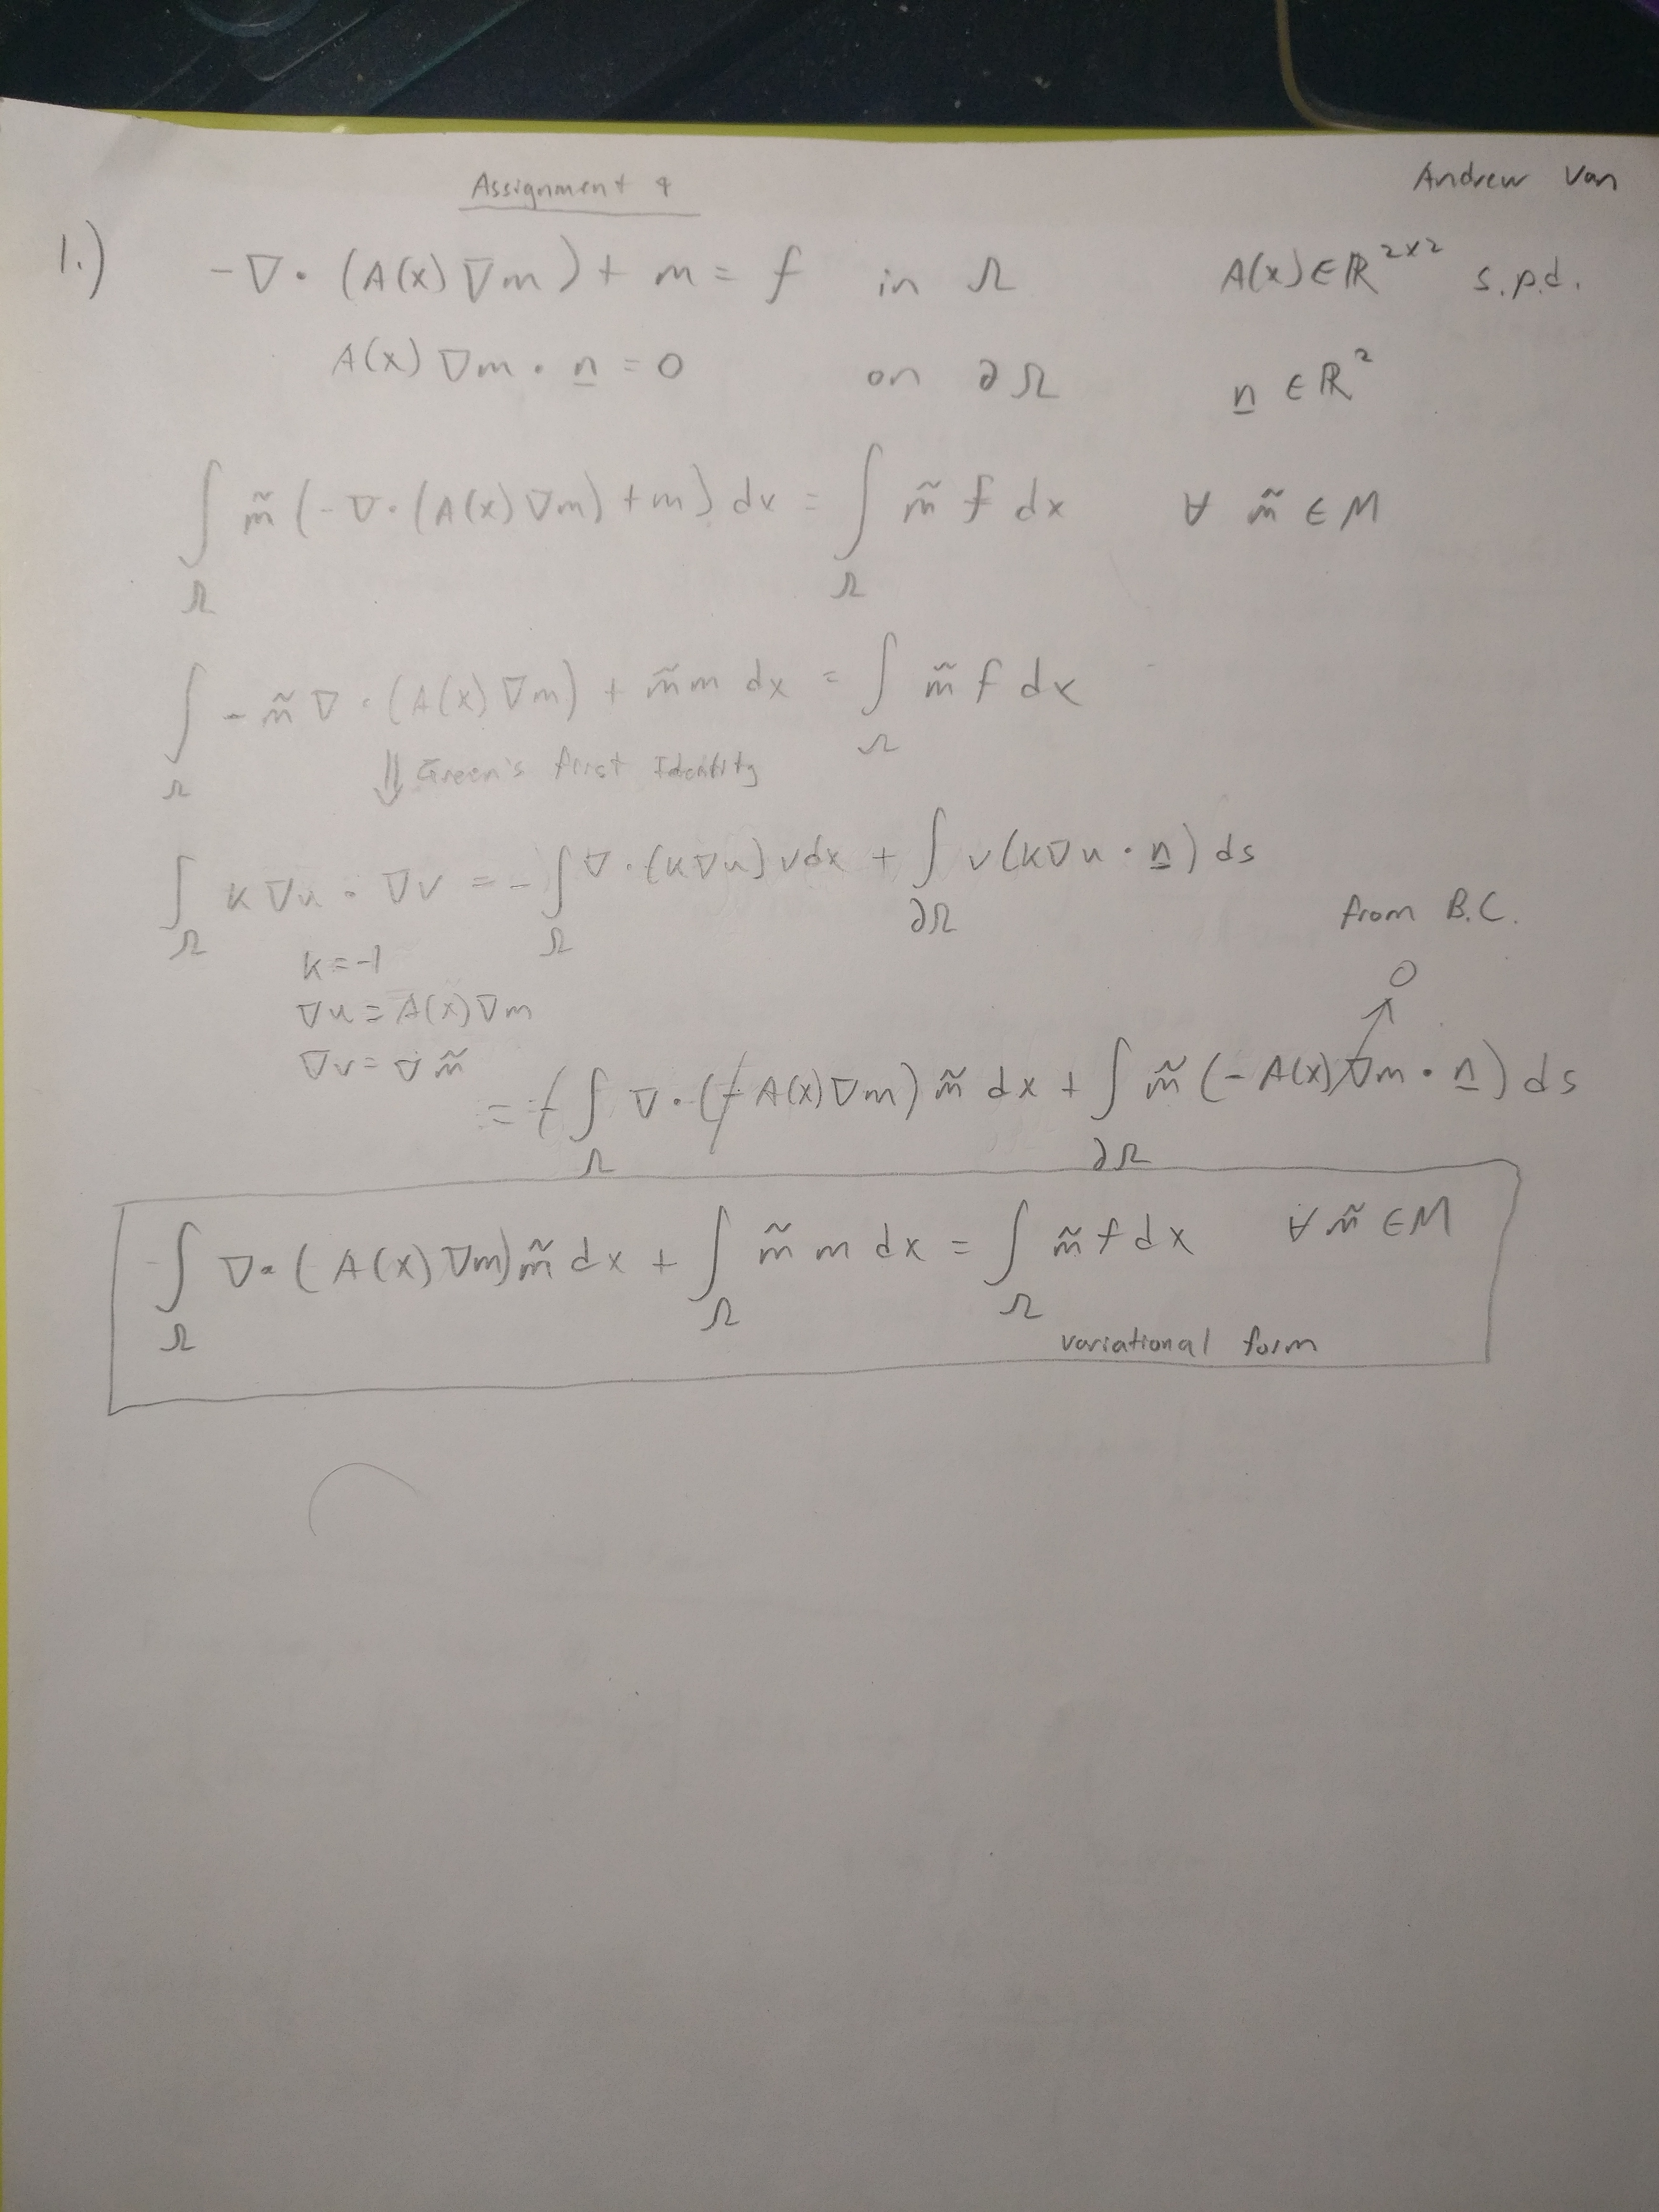 Assignment 4
Andrew Van
1.) -∇·(A(x)∇m) + m = f in Ω A(x)∈ℝ^{2x2} s.p.d.
A(x)∇m·n̲ = 0 on ∂Ω n̲ ∈ ℝ²
∫_Ω m̃(-∇·(A(x)∇m) + m) dx = ∫_Ω m̃ f dx ∀ m̃ ∈ M
∫_Ω -m̃∇·(A(x)∇m) + m̃m dx = ∫_Ω m̃ f dx
⇓ Green's first Identity
∫_Ω k∇u·∇v = -∫_Ω ∇·(k∇u)vdx + ∫_∂Ω v(k∇u·n̲) ds
from B.C.
k = -1
0
∇u = A(x)∇m
∇v = ∇m̃
= -∫_Ω ∇·(-A(x)∇m) m̃ dx + ∫_∂Ω m̃(-A(x)∇m·n̲) ds
∫_Ω ∇·(A(x)∇m)m̃ dx + ∫_Ω m̃ m dx = ∫_Ω m̃ f dx ∀ m̃ ∈ M
variational form